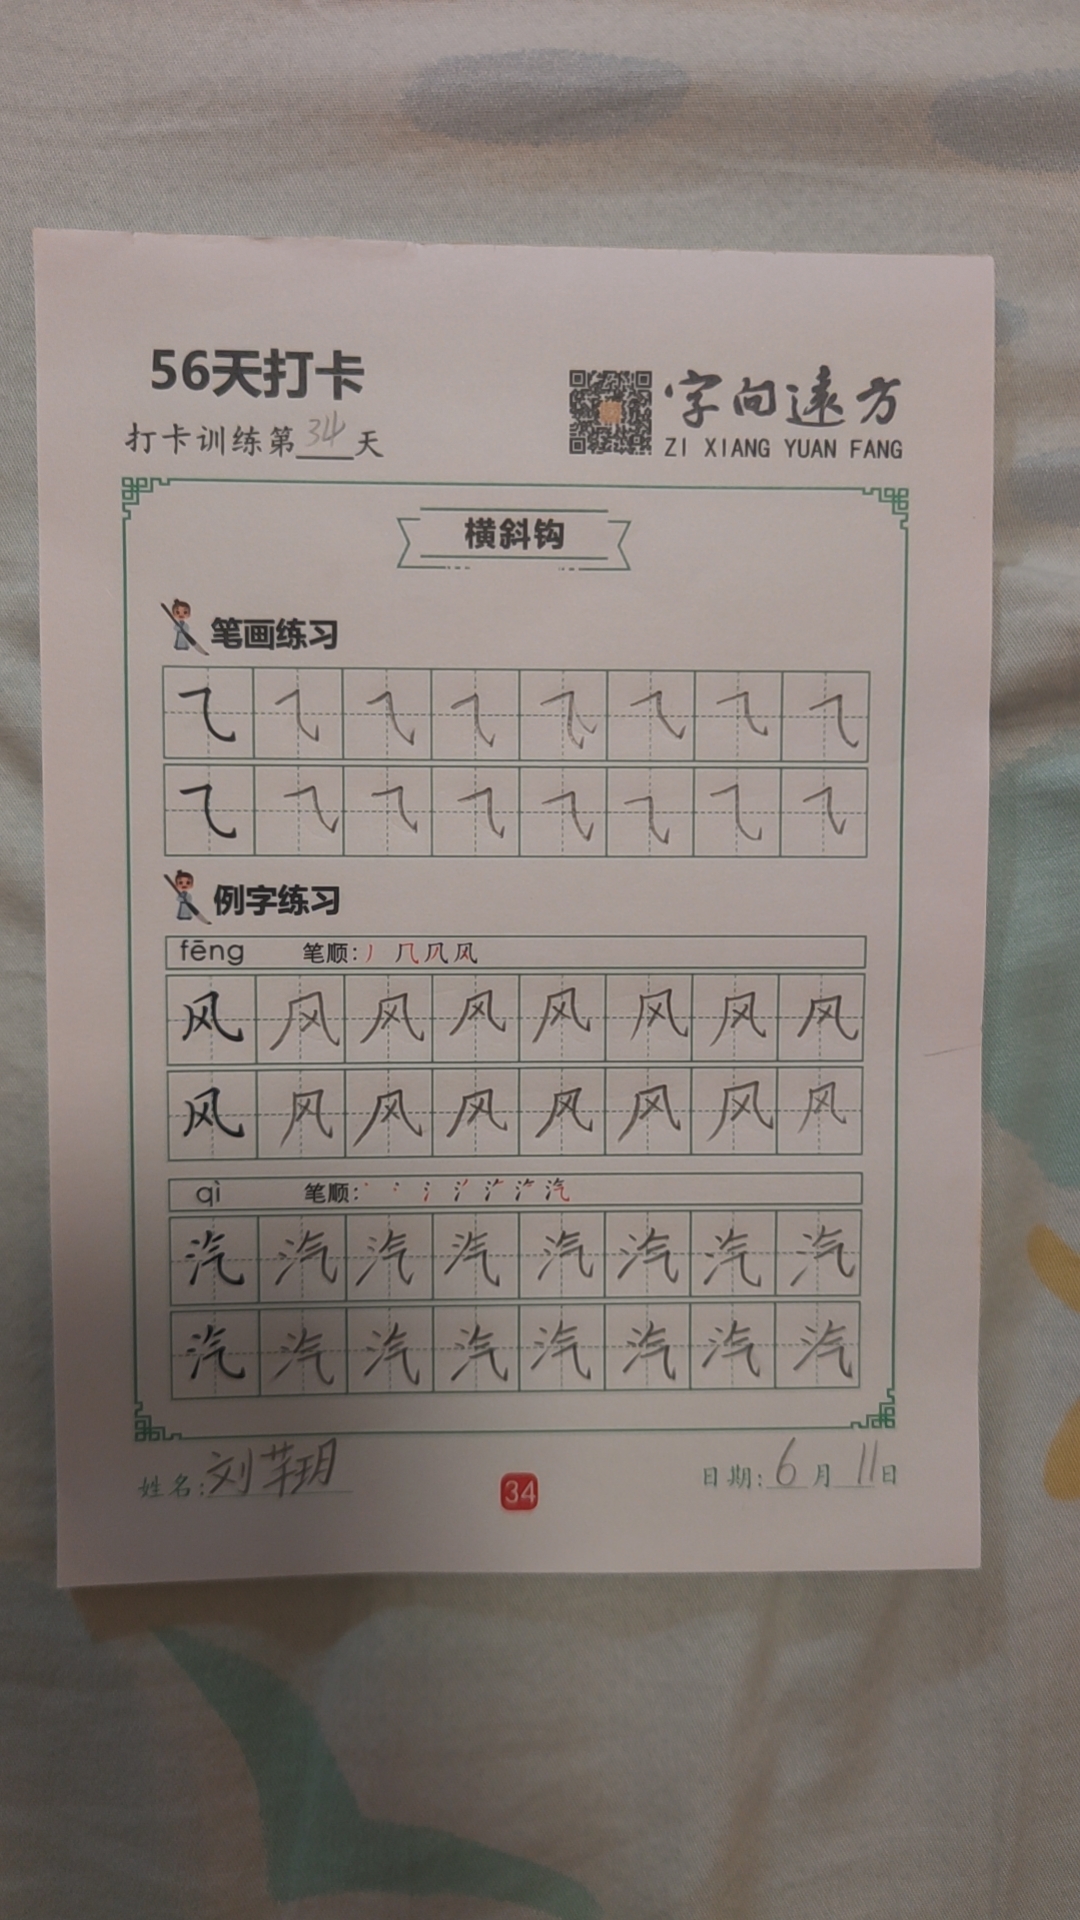 56天打卡
打卡训练第34天
字向遠方
ZI XIANG YUAN FANG
横斜钩
笔画练习
㇈ ㇈ ㇈ ㇈ ㇈ ㇈ ㇈ ㇈
㇈ ㇈ ㇈ ㇈ ㇈ ㇈ ㇈ ㇈
例字练习
fēng 笔顺:丿 几 凤 风
风 风 风 风 风 风 风 风
风 风 风 风 风 风 风 风
qì 笔顺:
汽 汽 汽 汽 汽 汽 汽 汽
汽 汽 汽 汽 汽 汽 汽 汽
姓名:刘芊玥
34
日期:6月11日